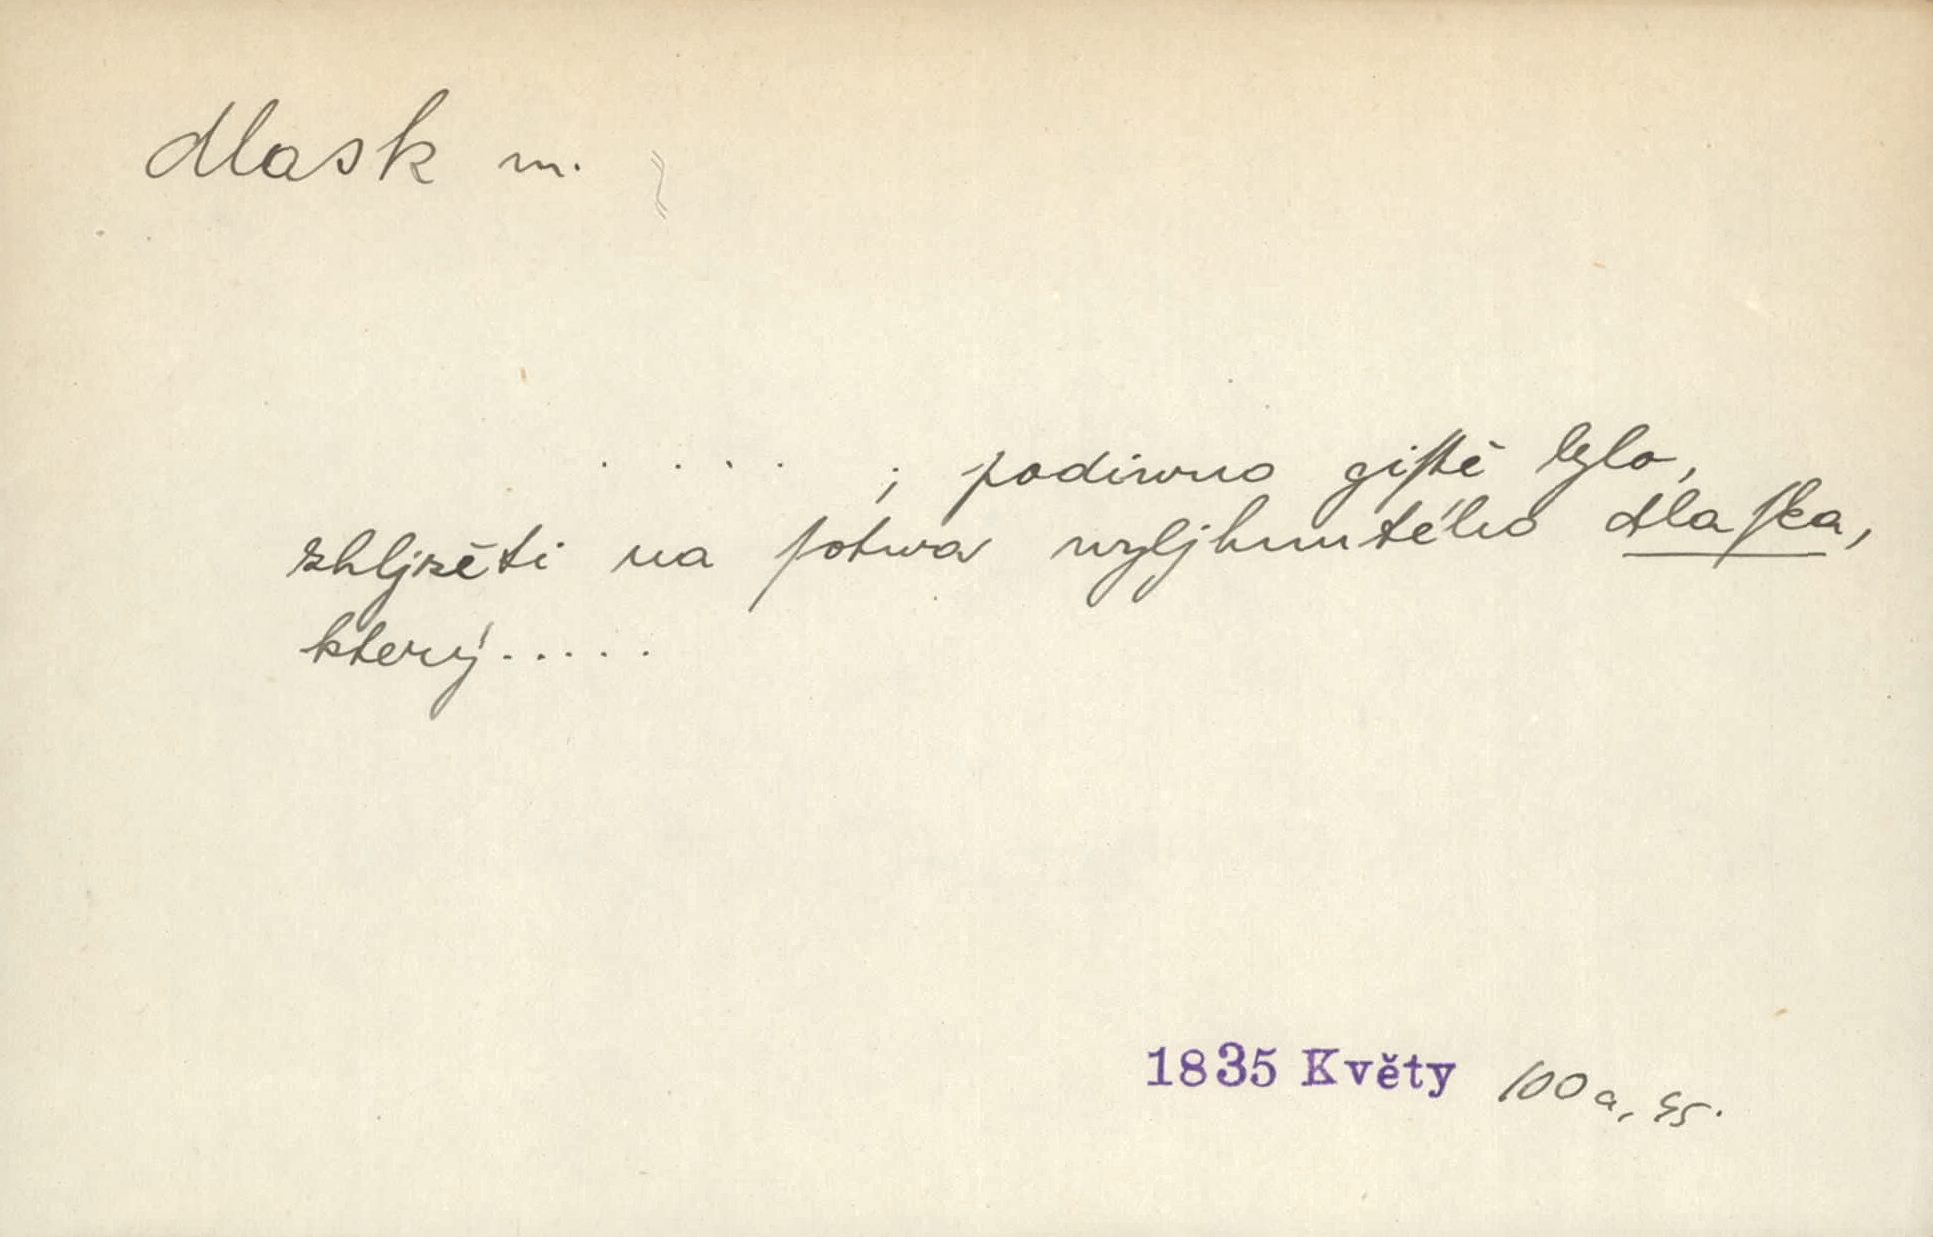 dlask m.
. . . . ; podiwno giſtě bylo,
shljzěti na ſotwa wyljhnutého dlaſka,
který.....
1835 Květy 100a, 45.